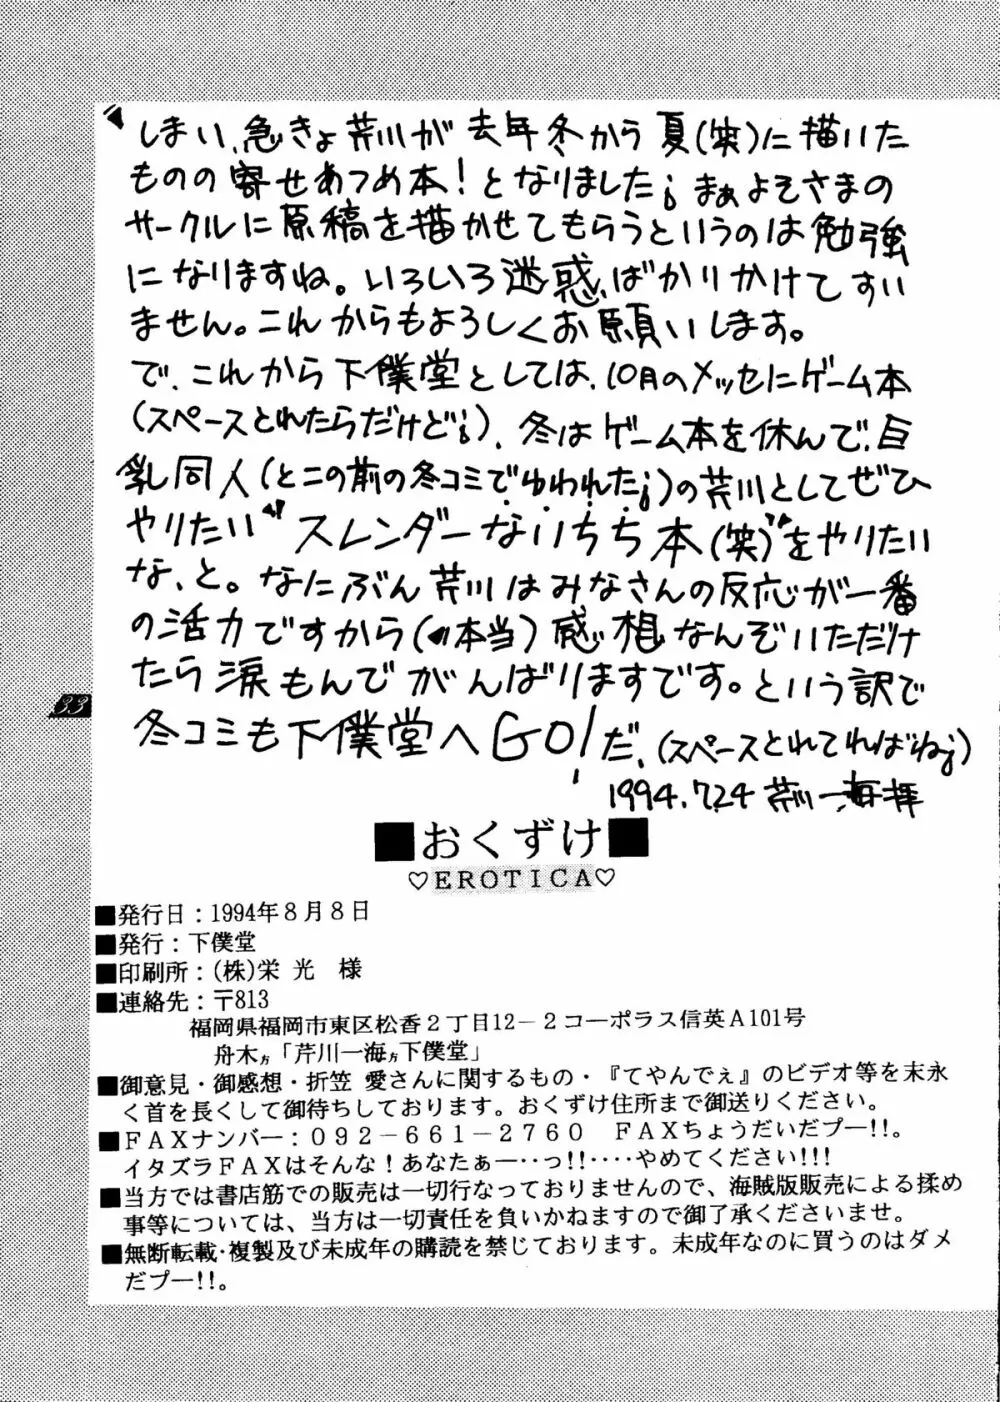 しまい、急きょ芹川が去年冬から夏(笑)に描いた
ものの寄せあつめ本!となりました;まぁよそさまの
サークルに原稿を描かせてもらうというのは勉強
になりますね。いろいろ迷惑ばかりかけてすい
ません。これからもよろしくお願いします。
で、これから下僕堂としては、10月のメッセにゲーム本
(スペースとれたらだけど;)、冬はゲーム本を休んで、巨
乳同人(とこの前の冬コミでゆわれた;)の芹川としてぜひ
やりたい“スレンダーないちち本(笑)”をやりたい
な、と。なにぶん芹川はみなさんの反応が一番
の活力ですから(本当)感想なんぞいただけ
たら涙もんでがんばりますです。という訳で
冬コミも下僕堂へGO!だ、(スペースとれてればね;)
1994.7.24 芹川一海拝
33
■おくずけ■
♡EROTICA♡
■発行日:1994年8月8日
■発行:下僕堂
■印刷所:(株)栄光 様
■連絡先:〒813
福岡県福岡市東区松香2丁目12-2コーポラス信英A101号
舟木方「芹川一海方下僕堂」
■御意見・御感想・折笠 愛さんに関するもの・『てやんでぇ』のビデオ等を末永
く首を長くして御待ちしております。おくずけ住所まで御送りください。
■FAXナンバー:092-661-2760 FAXちょうだいだプー!!。
イタズラFAXはそんな!あなたぁー‥っ!!‥‥やめてください!!!
■当方では書店筋での販売は一切行なっておりませんので、海賊版販売による揉め
事等については、当方は一切責任を負いかねますので御了承くださいませ。
■無断転載・複製及び未成年の購読を禁じております。未成年なのに買うのはダメ
だプー!!。